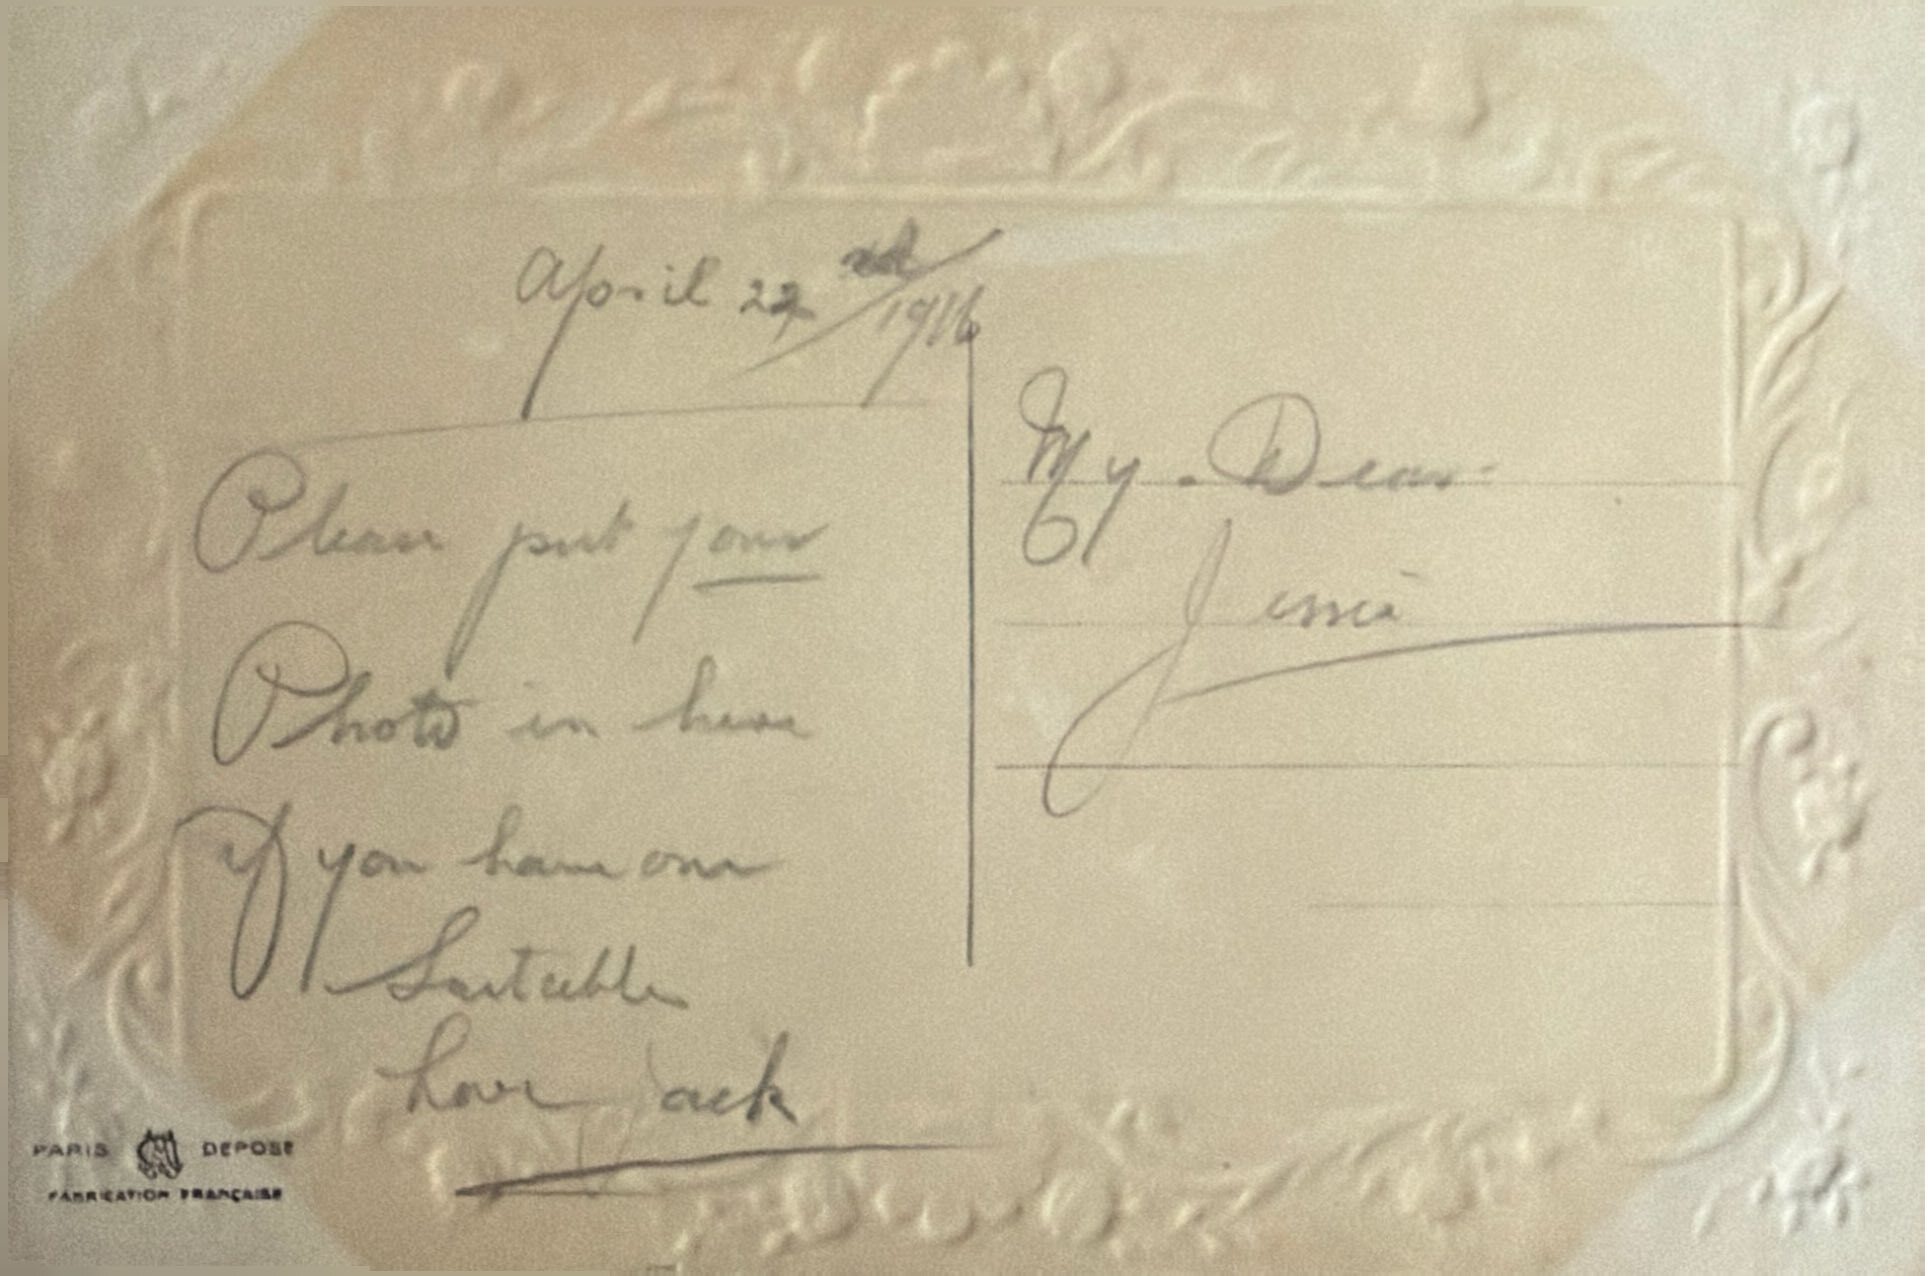 April 22nd/1916
Please put your
Photo in here
if you have one
Suitable
Love Jack
My Dear
Jessie
PARIS DEPOSE
FABRICATION FRANÇAISE